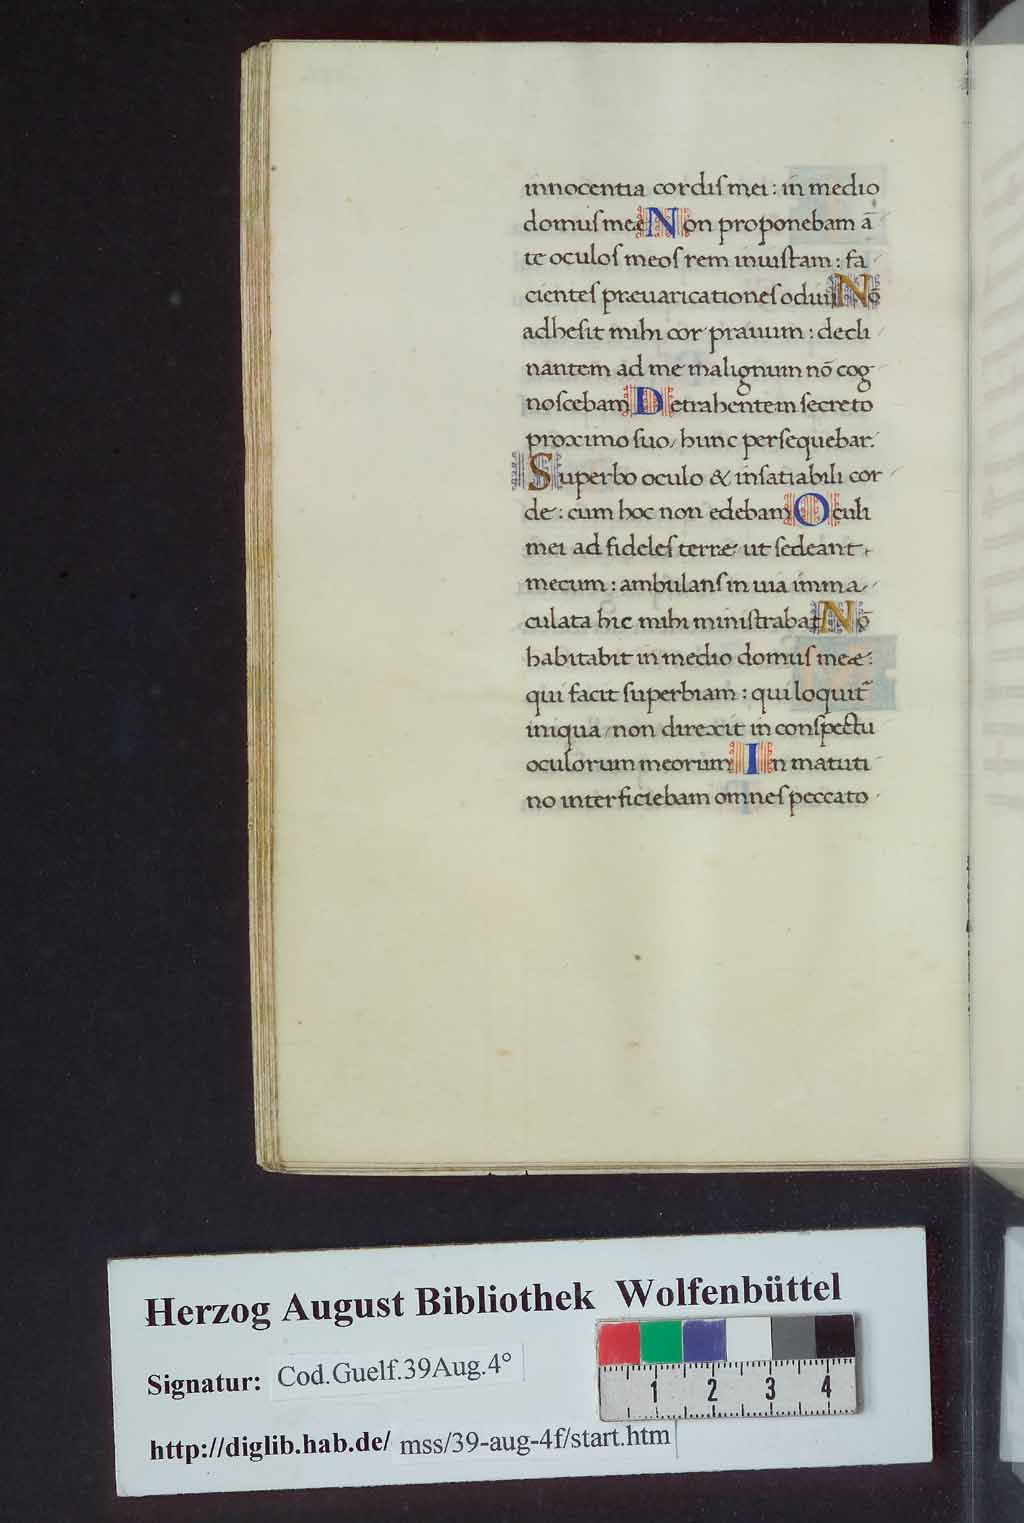 innocentia cordiſ mei : in medio
domuſ meę Non proponebam ā
te oculoſ meoſ rem iniuſtam : fa
cienteſ præuaricationeſ odiui Nō
adheſit mihi cor prauum : decli
nantem ad me malignum nō cog
noſcebam Detrahentem ſecreto
proximo ſuo, hunc perſequebar.
Superbo oculo & inſatiabili cor
de : cum hoc non edebam Oculi
mei ad fideleſ terræ ut ſedeant
mecum : ambulanſ in uia imma
culata hic mihi miniſtrabat Nō
habitabit in medio domuſ meæ :
qui facit ſuperbiam : qui loquit̃
iniqua non direxit in conſpectu
oculorum meorum In matuti
no interficiebam omneſ peccato
Herzog August Bibliothek Wolfenbüttel
Signatur: Cod.Guelf.39Aug.4°
1 2 3 4
http://diglib.hab.de/ mss/39-aug-4f/start.htm